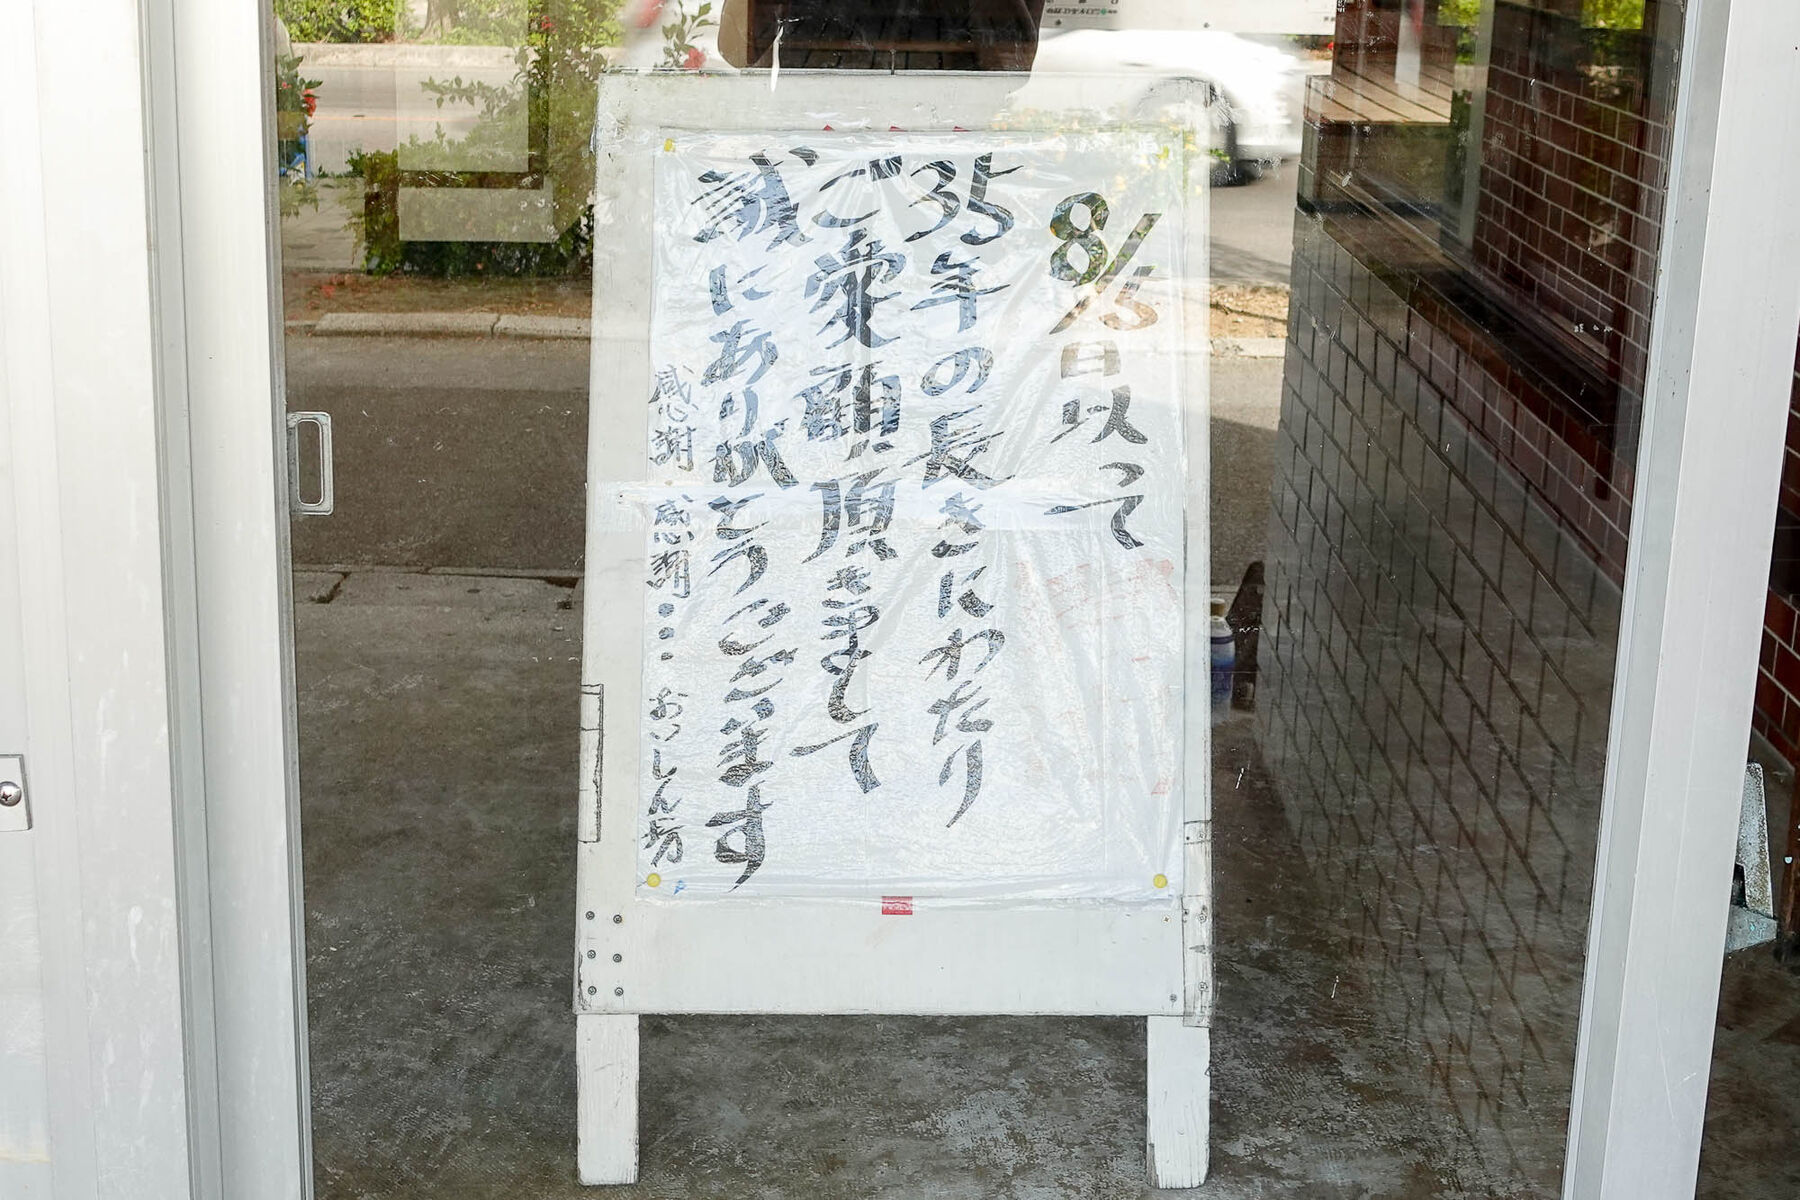 8/15日以って
35年の長きにわたり
ご愛顧頂きまして
誠にあり状とうございます
感謝・感謝・・・おっしん坊